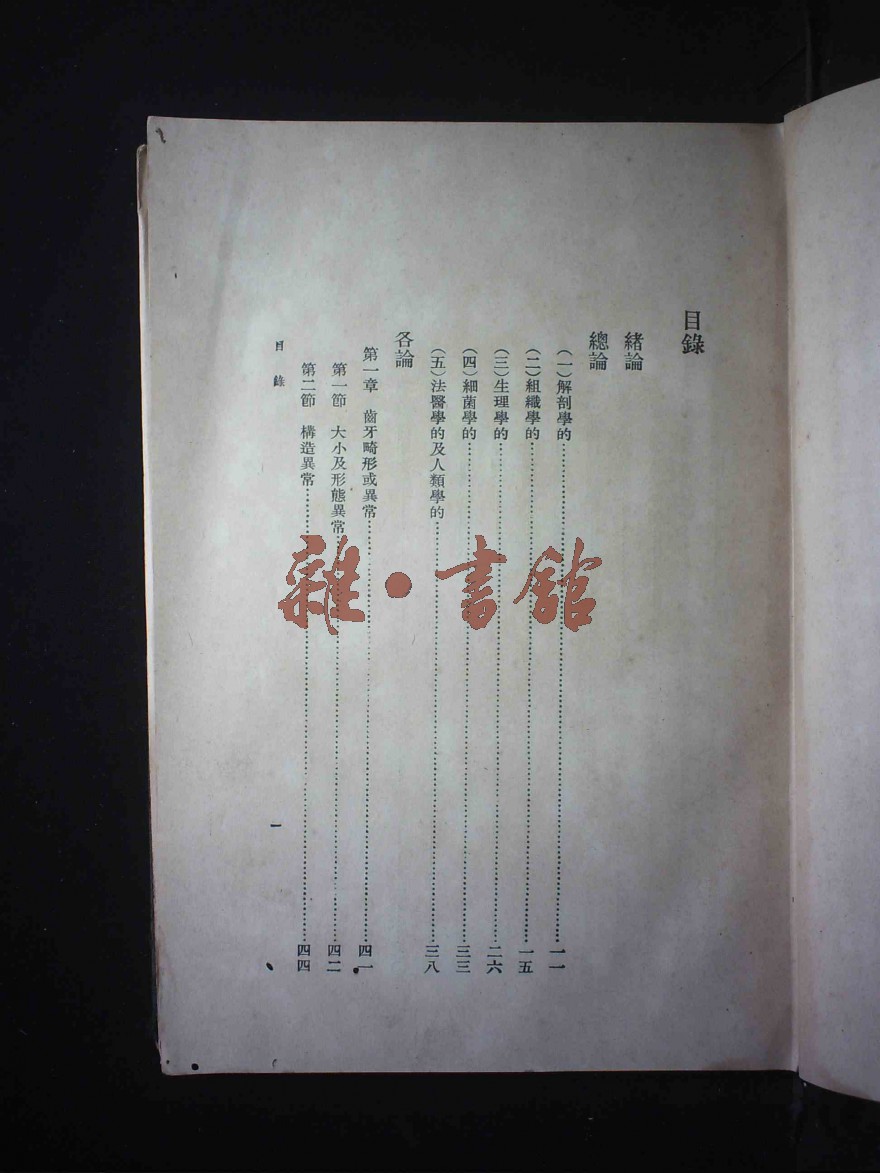 目錄
緒論
總論
(一)解剖學的……一一
(二)組織學的……一五
(三)生理學的……二六
(四)細菌學的……三三
(五)法醫學的及人類學的……三八
各論
第一章 齒牙畸形或異常……四一
第一節 大小及形態異常……四二
第二節 構造異常……四四
目錄
一
雜·書館